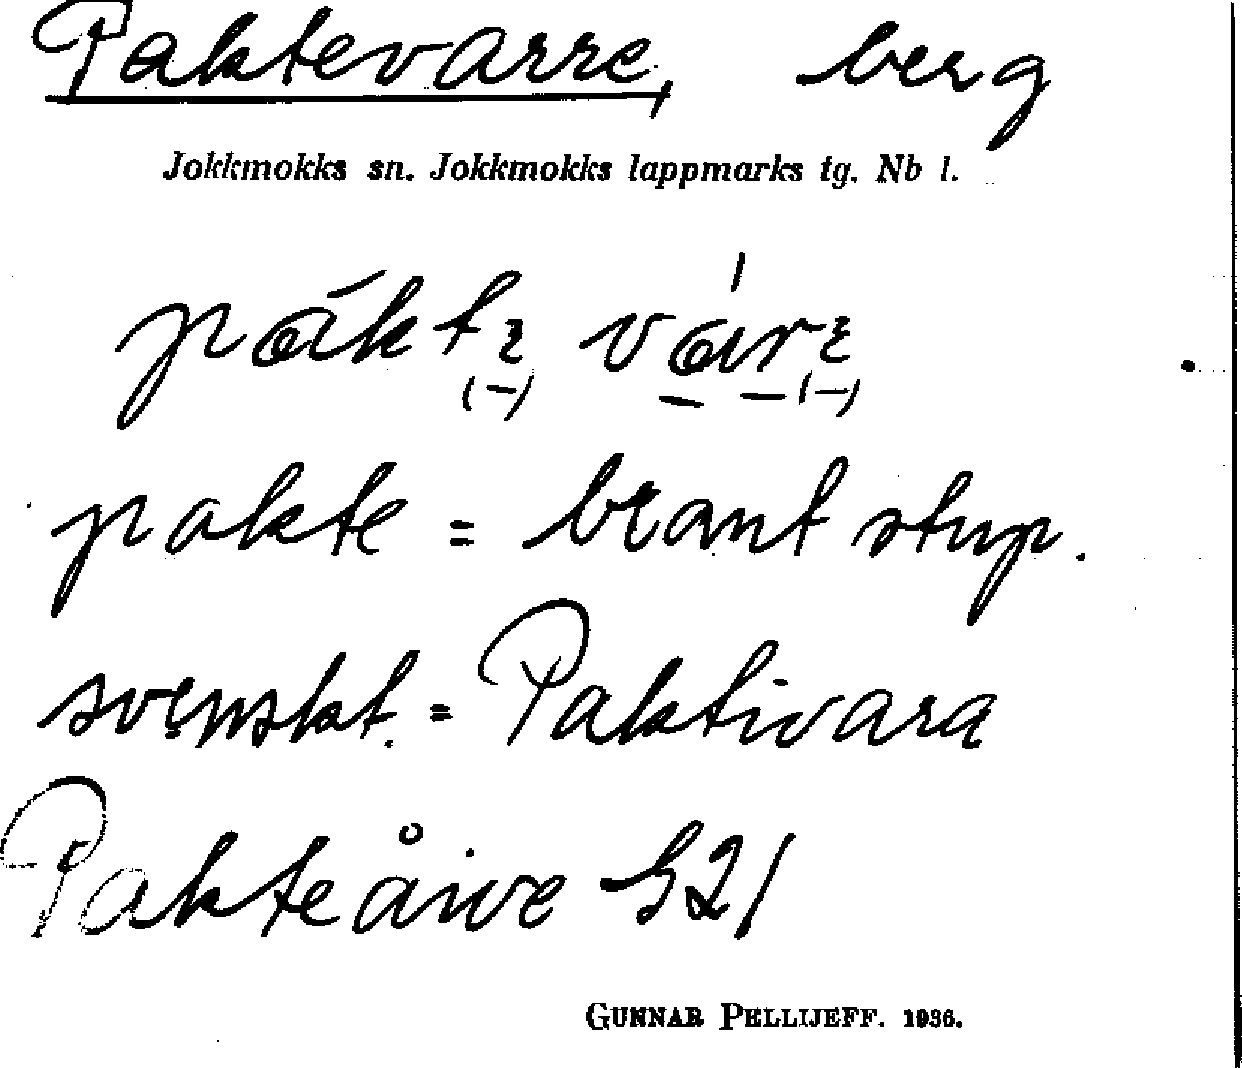 Paktevarre, berg
Jokkmokks sn. Jokkmokks lappmarks tg. Nb l.
pakte = brant stup.
svenskt. = Paktivara
Pakteåive 521
GUNNAR PELLIJEFF. 1936.